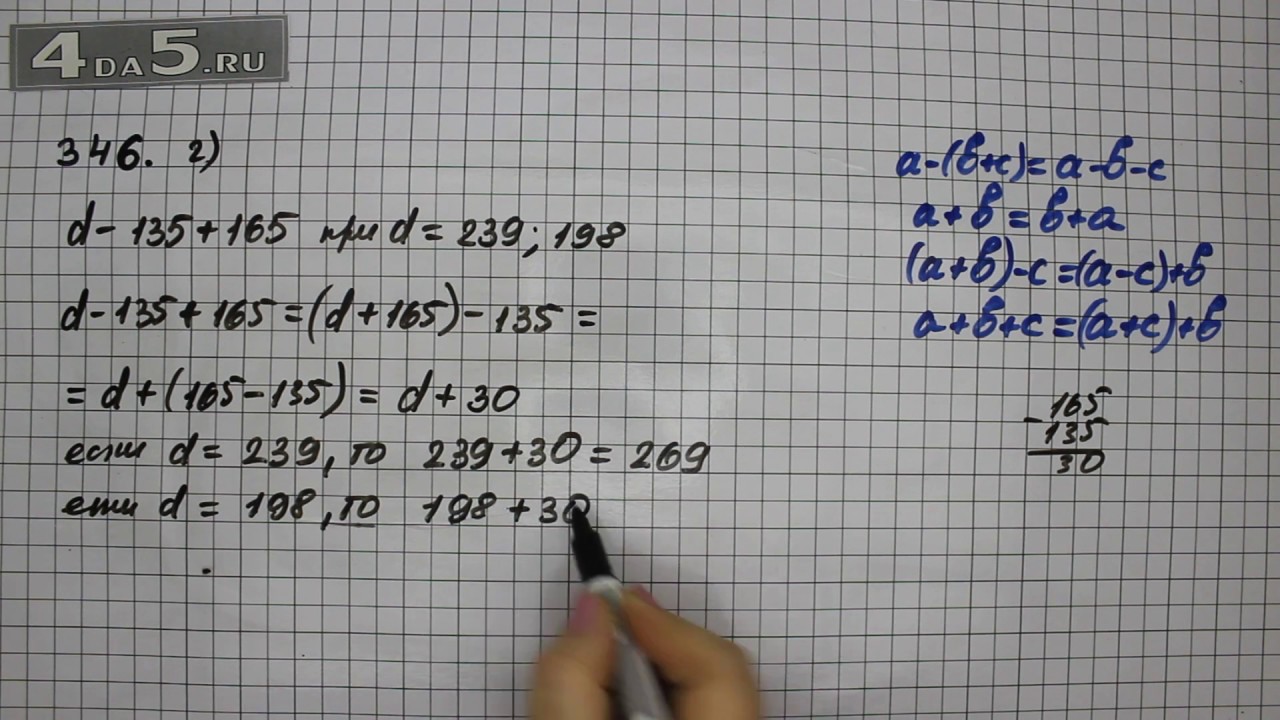 4DA5.RU
346. г)
d - 135 + 165 при d = 239; 198
d - 135 + 165 = (d + 165) - 135 =
= d + (165 - 135) = d + 30
если d = 239, то 239 + 30 = 269
если d = 198, то 198 + 30
a - (в + c) = a - в - c
a + в = в + a
(a + в) - c = (a - c) + в
a + в + c = (a + c) + в
165
- 135
30